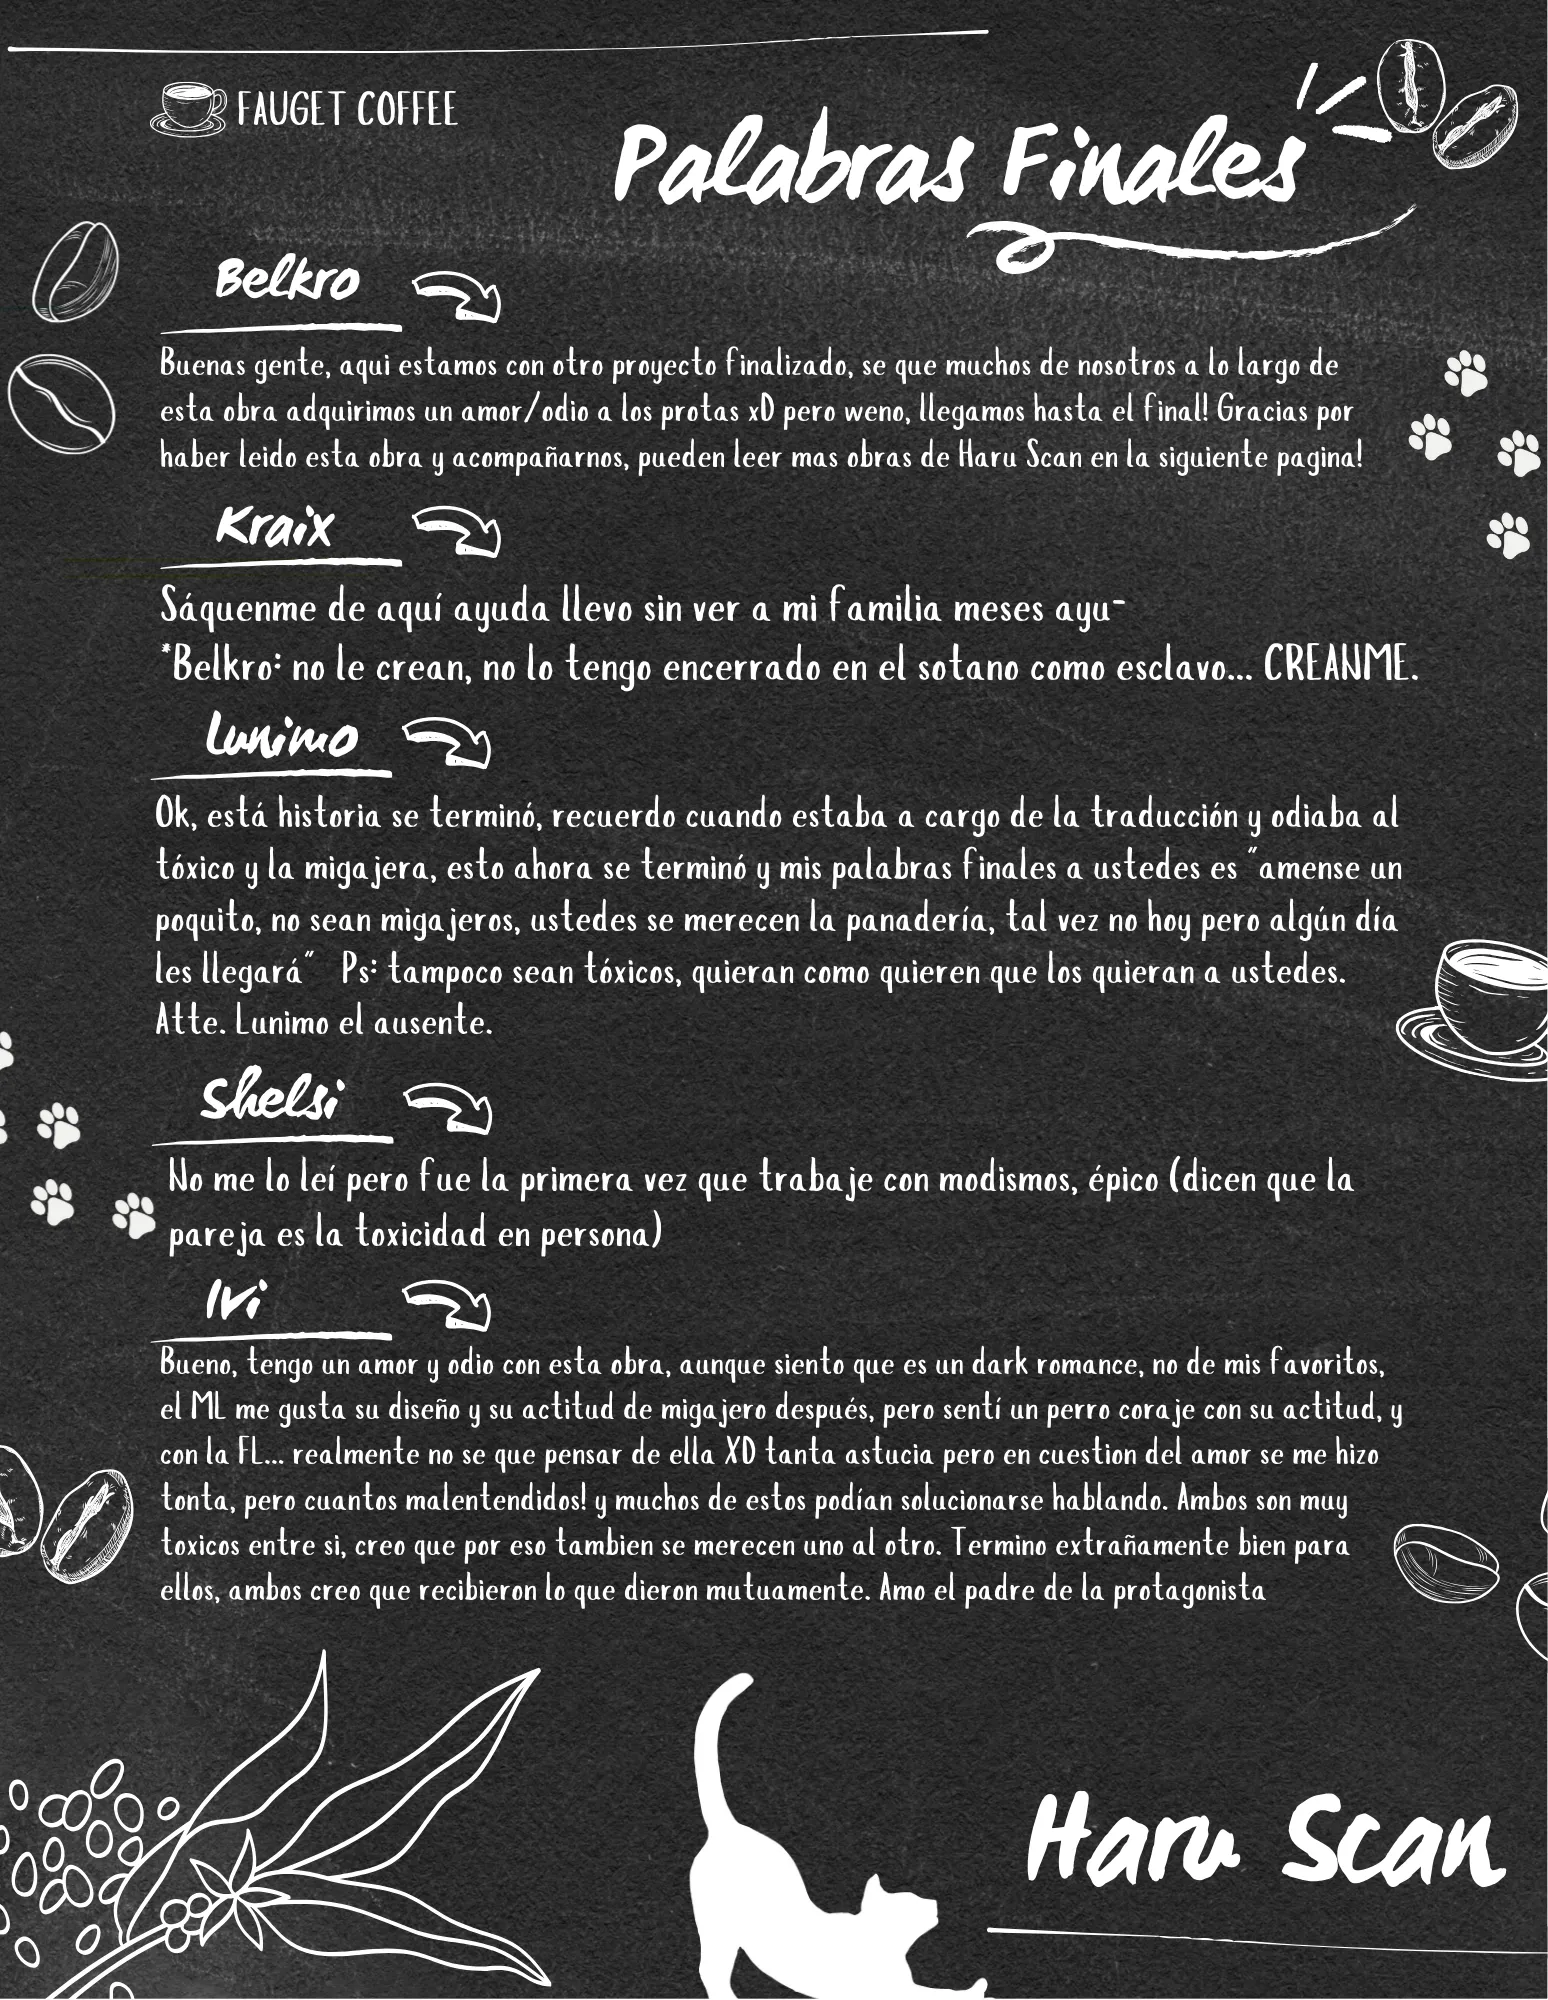 FAUGET COFFEE
Palabras Finales
Belkro
Buenas gente, aqui estamos con otro proyecto finalizado, se que muchos de nosotros a lo largo de
esta obra adquirimos un amor/odio a los protas xD pero weno, llegamos hasta el final! Gracias por
haber leido esta obra y acompañarnos, pueden leer mas obras de Haru Scan en la siguiente pagina!
Kraix
Sáquenme de aquí ayuda llevo sin ver a mi familia meses ayu-
*Belkro: no le crean, no lo tengo encerrado en el sotano como esclavo... CREANME.
Lunimo
Ok, está historia se terminó, recuerdo cuando estaba a cargo de la traducción y odiaba al
tóxico y la migajera, esto ahora se terminó y mis palabras finales a ustedes es "amense un
poquito, no sean migajeros, ustedes se merecen la panadería, tal vez no hoy pero algún día
les llegará" Ps: tampoco sean tóxicos, quieran como quieren que los quieran a ustedes.
Atte. Lunimo el ausente.
Shelsi
No me lo leí pero fue la primera vez que trabaje con modismos, épico (dicen que la
pareja es la toxicidad en persona)
Ivi
Bueno, tengo un amor y odio con esta obra, aunque siento que es un dark romance, no de mis favoritos,
el ML me gusta su diseño y su actitud de migajero después, pero sentí un perro coraje con su actitud, y
con la FL... realmente no se que pensar de ella XD tanta astucia pero en cuestion del amor se me hizo
tonta, pero cuantos malentendidos! y muchos de estos podían solucionarse hablando. Ambos son muy
toxicos entre si, creo que por eso tambien se merecen uno al otro. Termino extrañamente bien para
ellos, ambos creo que recibieron lo que dieron mutuamente. Amo el padre de la protagonista
Haru Scan